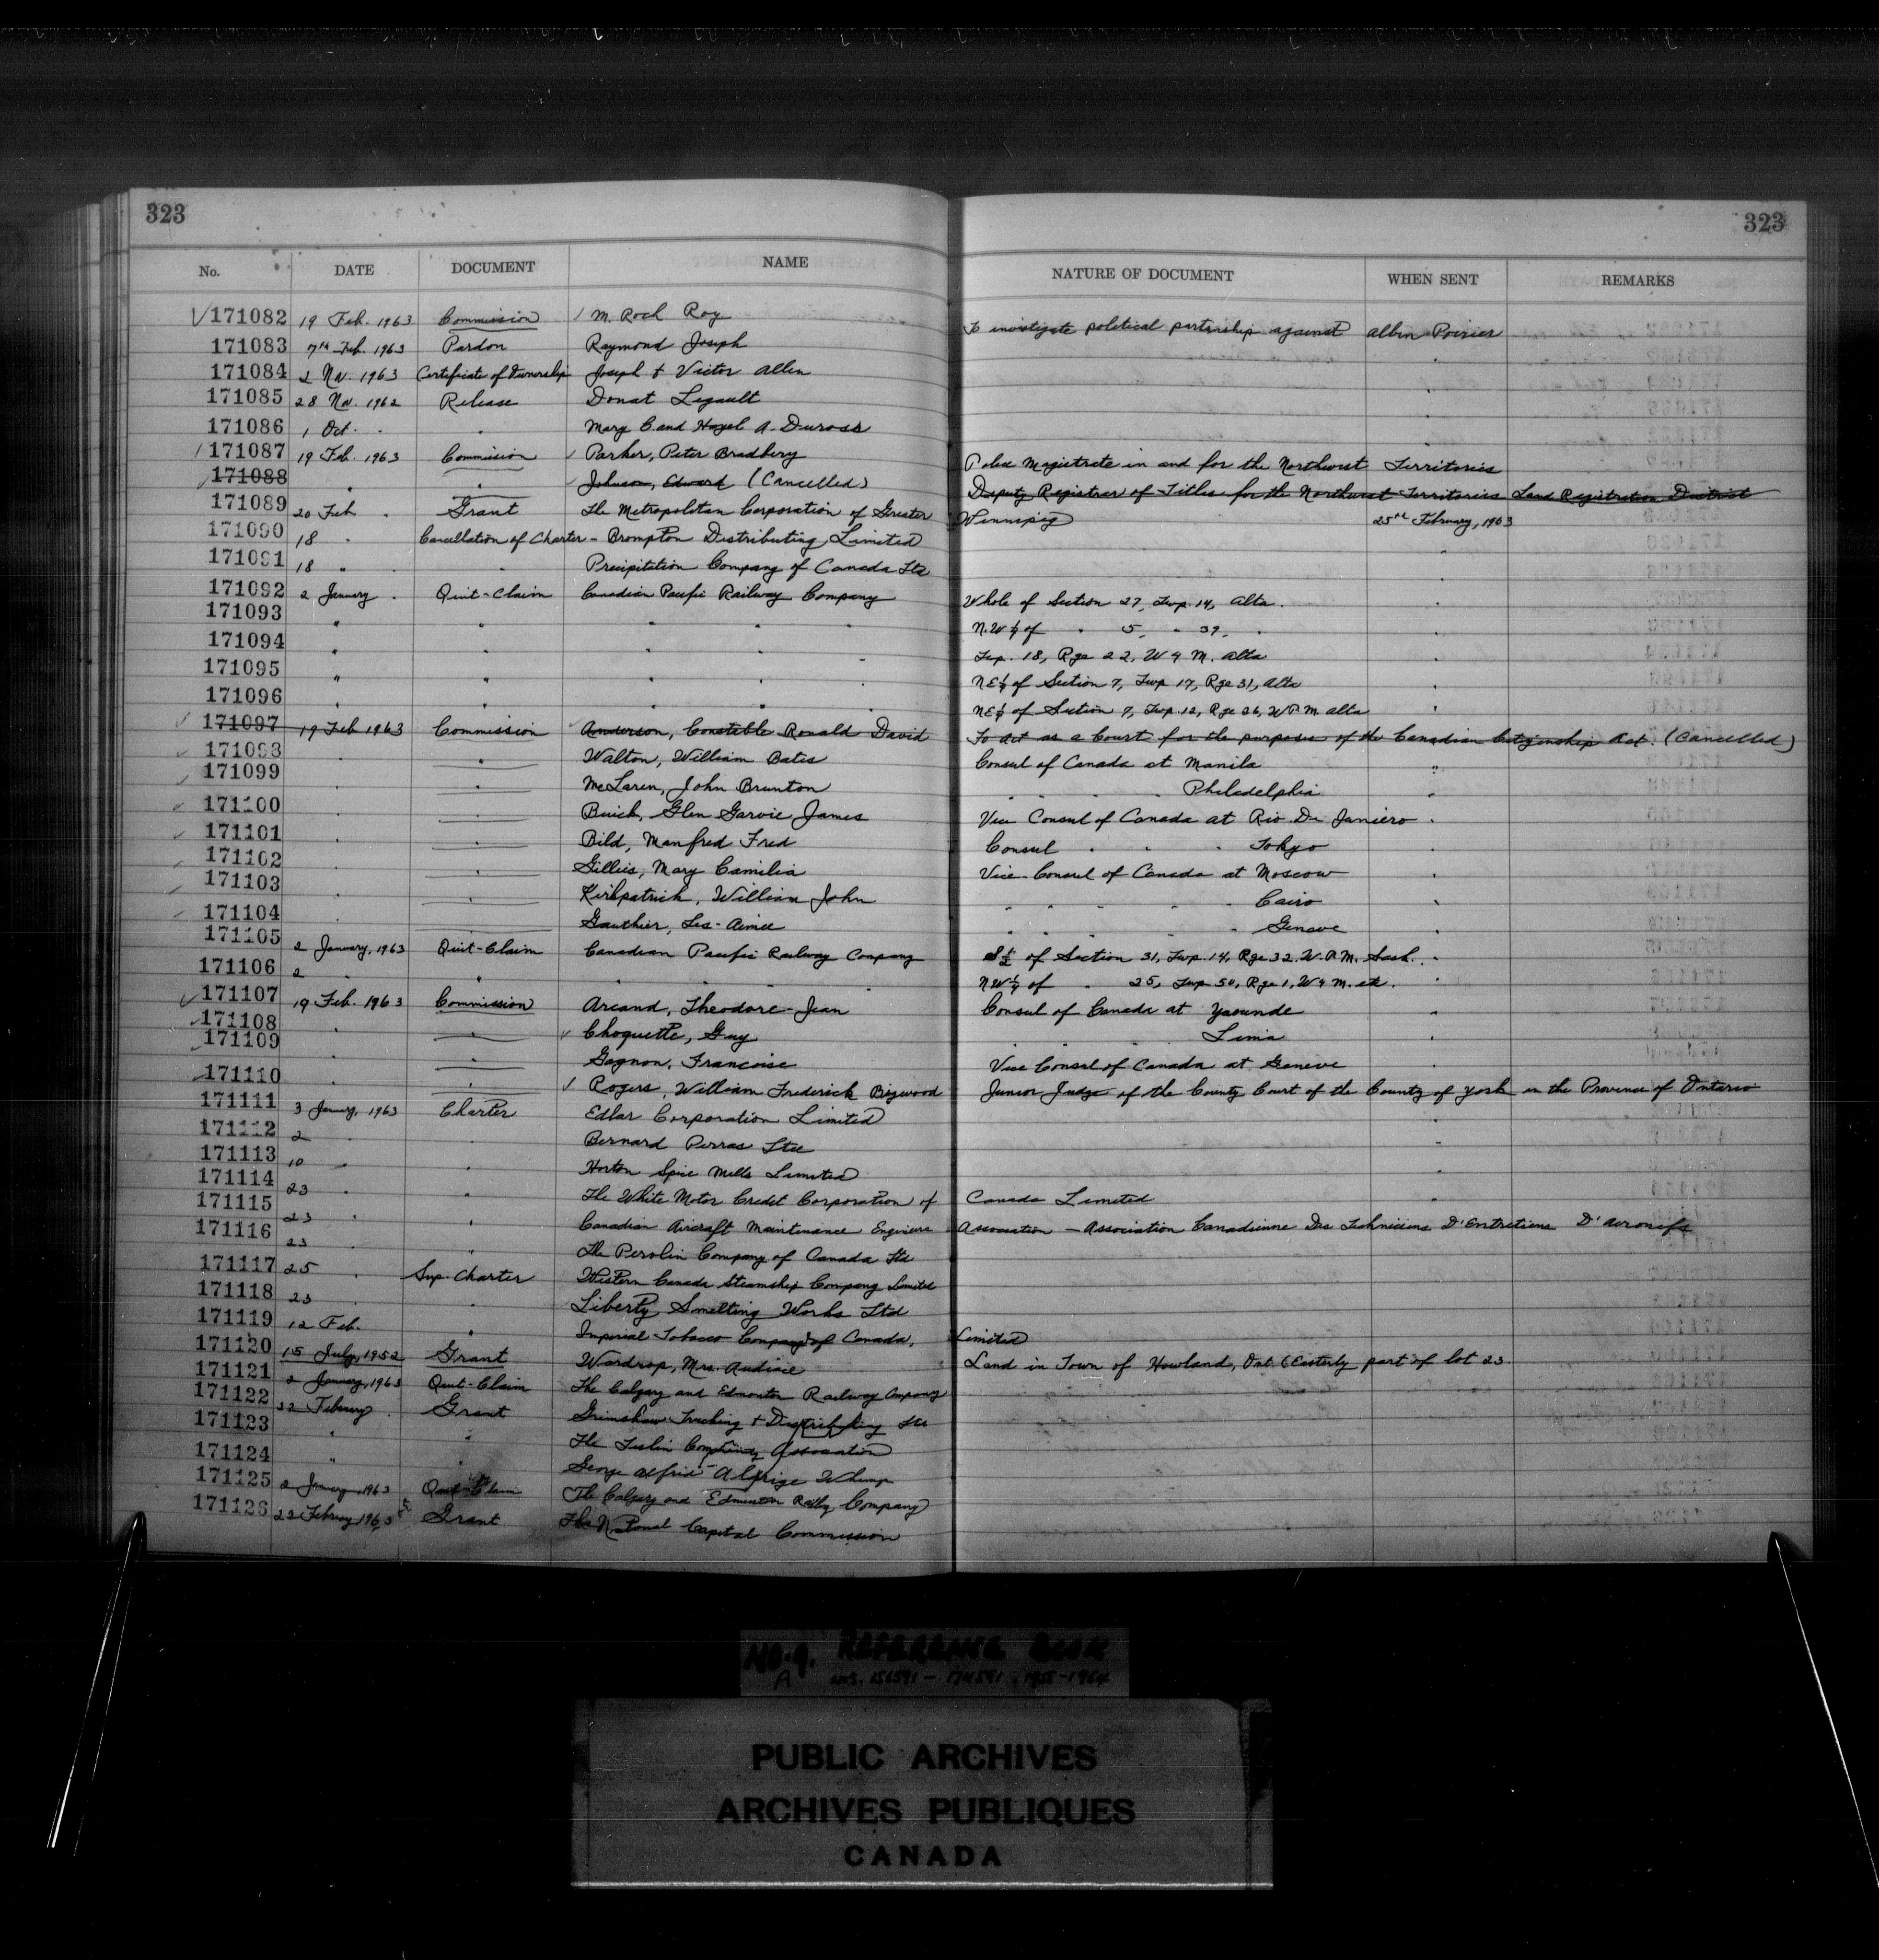 323 323
No. DATE DOCUMENT NAME NATURE OF DOCUMENT WHEN SENT REMARKS
171082 19 Feb. 1963 Commission M. Roch Roy To investigate political partnship against Albin Poirier
171083 7th Feb. 1963 Pardon Raymond Joseph
171084 2 Nov. 1963 Certificate of Ownership Joseph & Victor Allen
171085 28 Nov. 1962 Release Donat Legault
171086 1 Oct. " " Mary C. and Hazel A. Duross
171087 19 Feb. 1963 Commission Parker, Peter Bradbery Police Magistrate in and for the Northwest Territories
171088 " " Johnson, Edward (Cancelled) Deputy Registrar of Titles for the Northwest Territories Land Registration District
171089 20 Feb. " Grant The Metropolitan Corporation of Greater Winnipeg 25th February, 1963
171090 18 " Cancellation of Charter - Brompton Distributing Limited
171091 18 " " Precipitation Company of Canada Ltd
171092 2 January " Quit-Claim Canadian Pacific Railway Company Whole of Section 27, Twp. 14, Alta.
171093 " " " " " N.W ¼ of " 5, " 37, "
171094 " " " " " Twp. 18, Rge 22, W 4 M. Alta
171095 " " " " " NE¼ of Section 7, Twp 17, Rge 31, Alta
171096 " " " NE¼ of Section 9, Twp. 12, Rge 26, W.P.M. Alta
171097 19 Feb 1963 Commission Anderson, Constable Ronald David To act as a Court for the purposes of the Canadian Citizenship Act. (Cancelled)
171098 " " Walton, William Bates Consul of Canada at Manila
171099 " " McLaren, John Brunton " " " Philadelphia
171100 " " Buick, Glen Garvie James Vice Consul of Canada at Rio De Janiero
171101 " " Bild, Manfred Fred Consul " " " Tokyo
171102 " " Gillies, Mary Camilia Vice-Consul of Canada at Moscow
171103 " " Kirkpatrick, William John " " " " Cairo
171104 " " Gauthier, Les-Aimee " " " " Geneve
171105 2 January, 1963 Quit-Claim Canadian Pacific Railway Company S½ of Section 31, Twp. 14, Rge 32. W.P.M. Sask.
171106 2 " " " " " NW ¼ of " 25, Twp 50, Rge 1, W 4 M.
171107 19 Feb. 1963 Commission Arcand, Theodore-Jean Consul of Canada at Yaounde
171108 " " Choquette, Guy " " " Lima
171109 " " Gagnon, Francoise Vice Consul of Canada at Geneve
171110 " " Rogers, William Frederick Bigwood Junior Judge of the County Court of the County of York in the Province of Ontario
171111 3 January, 1963 Charter Edlar Corporation Limited
171112 2 " " Bernard Perras Ltee
171113 10 " " Horton Spice Mills Limited
171114 23 " " The White Motor Credit Corporation of Canada Limited
171115 23 " " Canadian Aircraft Maintenance Engineers Association - Association Canadienne Des Techniciens D'Entretiens D'Aeronefs
171116 23 " " The Perolin Company of Canada Ltd
171117 25 " Sup. Charter Western Canada Steamship Company Limited
171118 23 " " Liberty Smelting Works Ltd
171119 12 Feb. " Imperial Tobacco Company of Canada, Limited
171120 15 July, 1952 Grant Wardrop, Mrs. Land in Town of Howland, Ont (Easterly part of lot 23.
171121 2 January, 1963 Quit-Claim The Calgary and Edmonton Railway Company
171122 22 February " Grant Grimshaw Trucking & Distributing Ltd
171123 " " The Teslin Association
171124 " " George
171125 2 January, 1963 Quit-Claim The Calgary and Edmonton Railway Company
171126 22 February 1963 Grant The National Capital Commission
NO. 9. REFERENCE BOOK
A NOS. 156591 - 174591. 1955-1964
PUBLIC ARCHIVES
ARCHIVES PUBLIQUES
CANADA